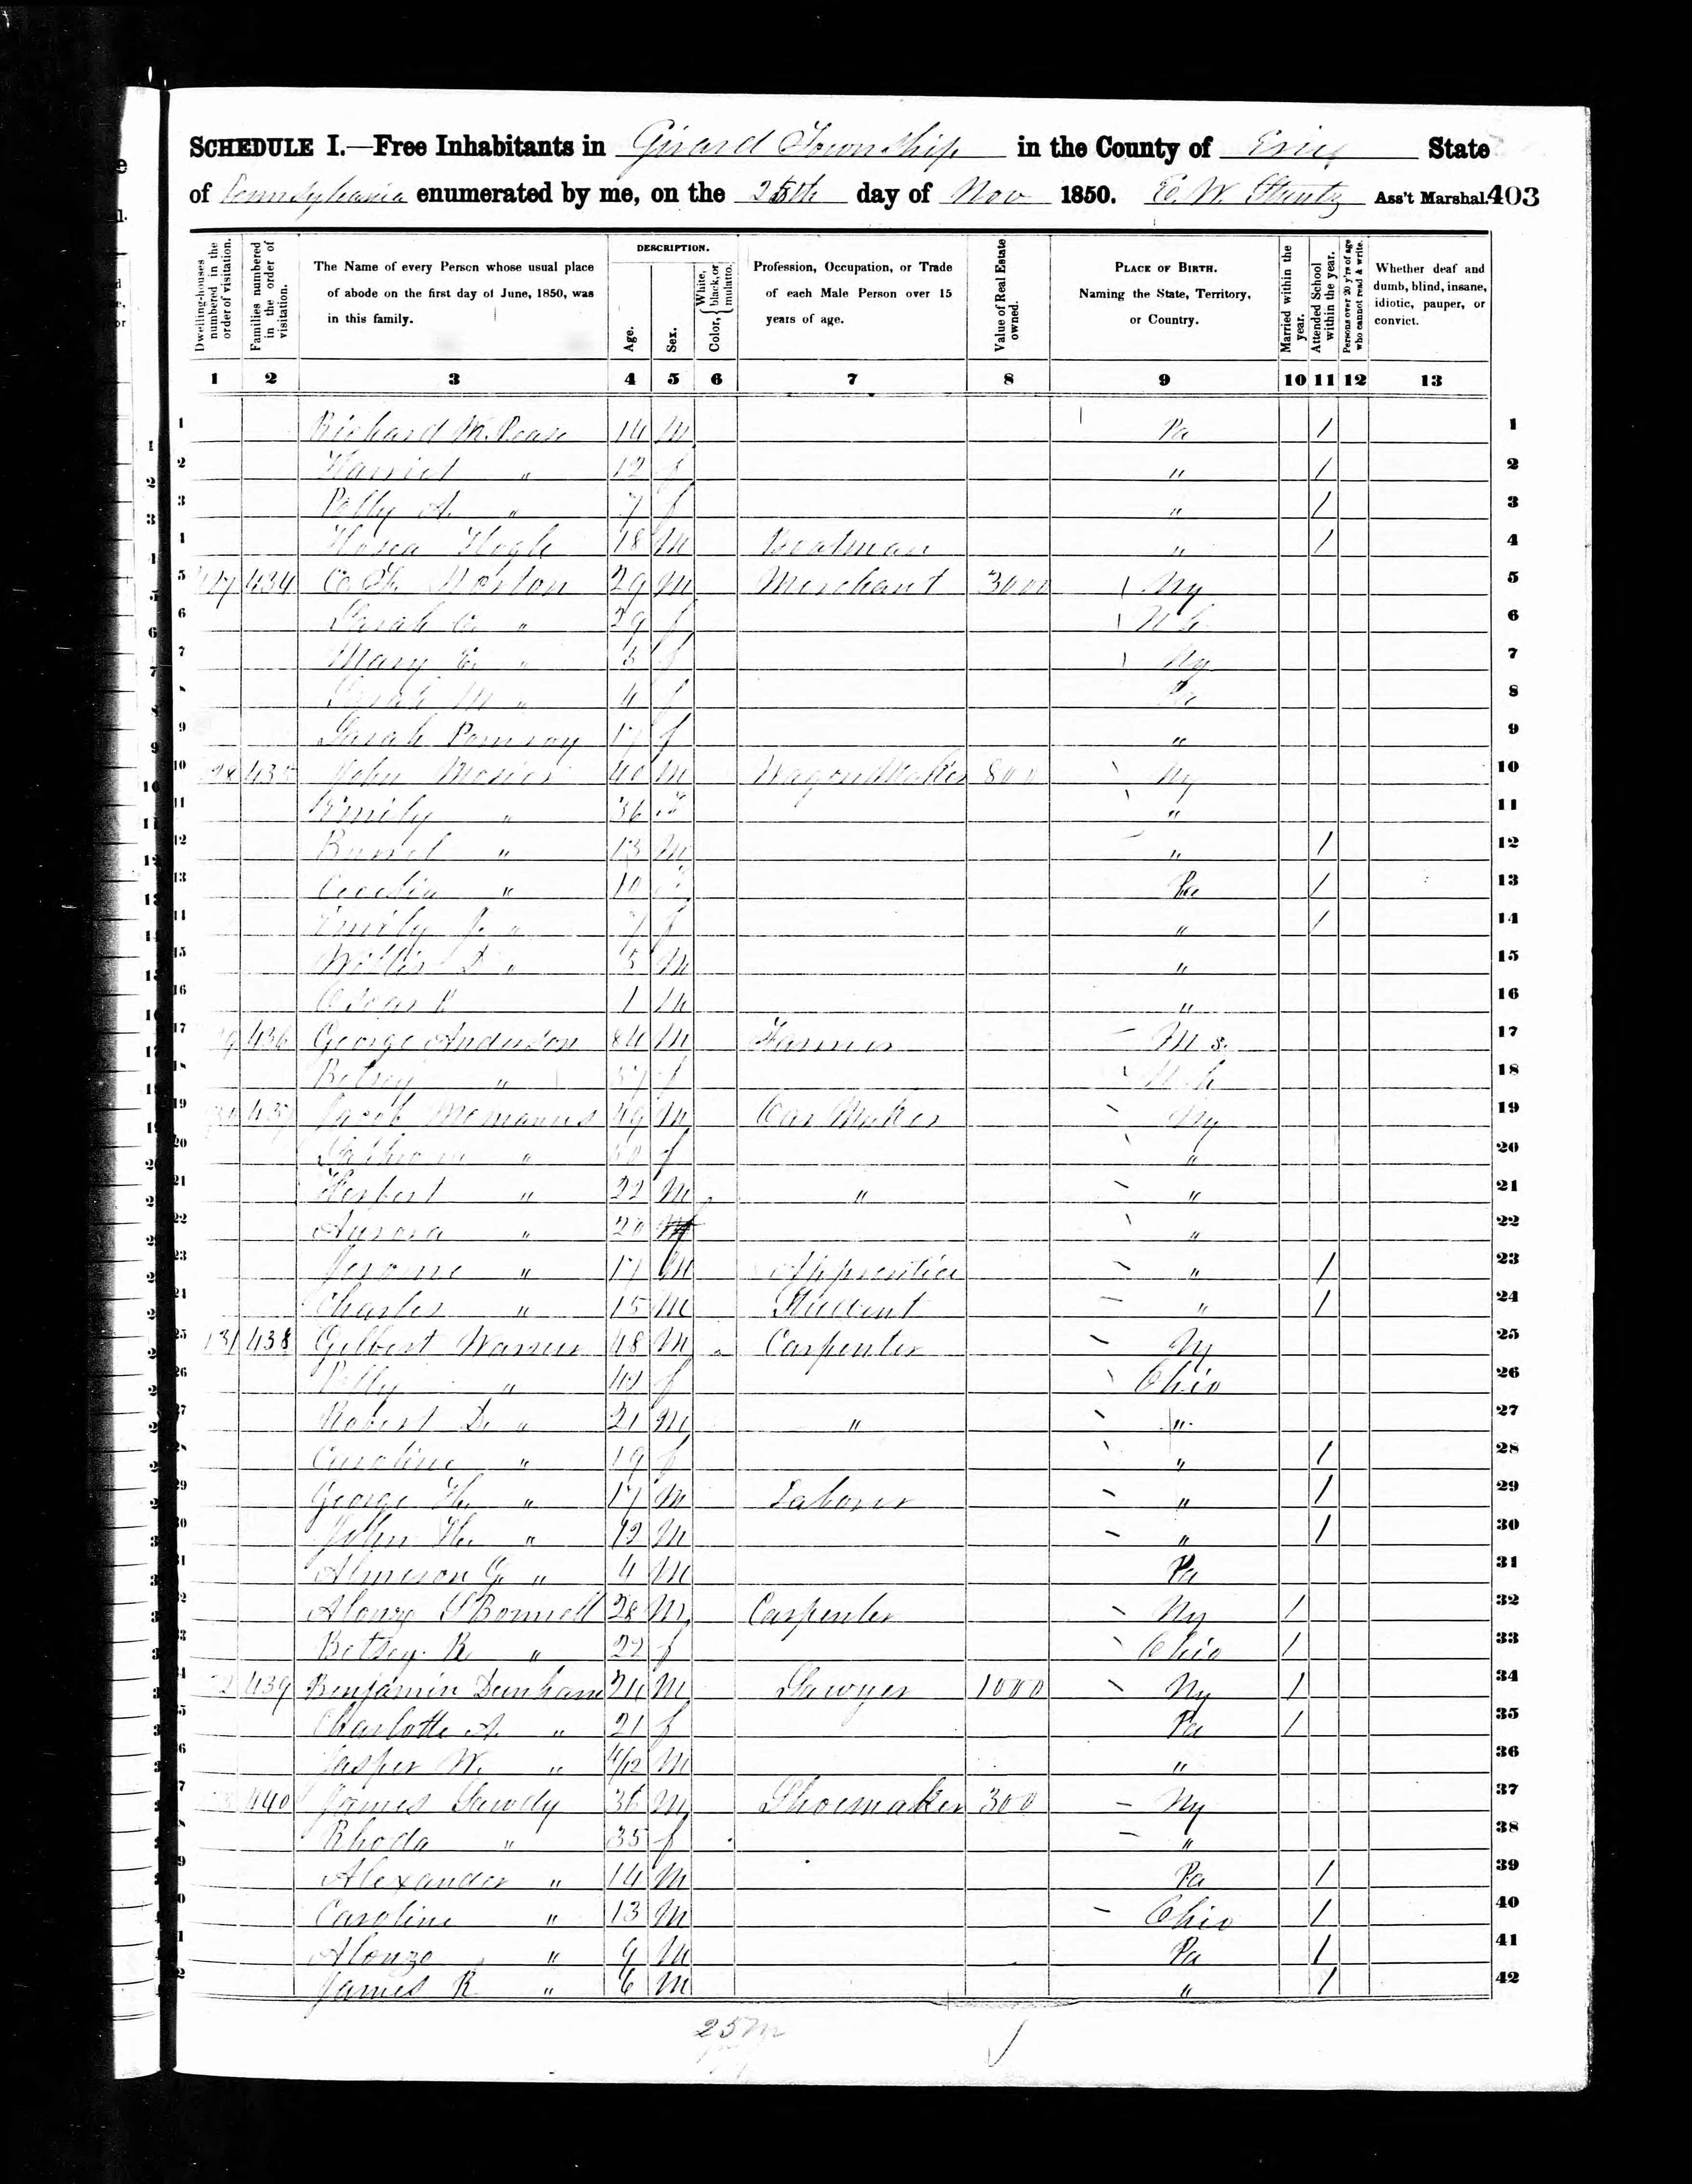 SCHEDULE I.—Free Inhabitants in Girard Township in the County of Erie State
of Pennsylvania enumerated by me, on the 25th day of Nov 1850. E. W. Ass't Marshal. 403
Dwelling-houses numbered in the order of visitation.
Families numbered in the order of visitation.
The Name of every Person whose usual place of abode on the first day of June, 1850, was in this family.
DESCRIPTION.
Age.
Sex.
Color, { White, black, or mulatto.
Profession, Occupation, or Trade of each Male Person over 15 years of age.
Value of Real Estate owned.
PLACE OF BIRTH. Naming the State, Territory, or Country.
Married within the year.
Attended School within the year.
Persons over 20 y'rs of age who cannot read & write.
Whether deaf and dumb, blind, insane, idiotic, pauper, or convict.
1 2 3 4 5 6 7 8 9 10 11 12 13
1 Richard M. Pease 14 M Pa / 1
2 Harriet " 12 f " / 2
3 Polly A. " 7 f " / 3
4 Hosea Hogle 18 M Boatman " / 4
5 434 Horton 29 M Merchant 3000 Ny 5
6 Sarah C. " 29 f 6
7 Mary E. " f Ny 7
8 Sarah M " 4 f Pa 8
9 Sarah Pomroy 17 f " 9
10 435 John Mosier 40 M Wagon Maker 800 Ny 10
11 Emily " 36 f " 11
12 " 13 M " / 12
13 " 10 f Pa / 13
14 Emily J. " 7 f " / 14
15 D " 5 M " 15
16 Oscar 1 M " 16
17 436 George Anderson 84 M Farmer Ms. 17
18 Betsey " f 18
19 437 Jacob Mcmanus 49 M Car Maker Ny 19
20 " f " 20
21 Herbert " 22 M " " 21
22 Aurora " 20 f " 22
23 Jerome " 17 M Apprentice " / 23
24 Charles " 15 M Student " / 24
25 131 438 Gilbert Warner 48 M Carpenter Ny 25
26 Polly " f Ohio 26
27 Robert D. " 21 M " " 27
28 Caroline " 19 f " / 28
29 George H. " 17 M Laborer " / 29
30 John H. " 12 M " / 30
31 Almeson G. " 4 M Pa 31
32 Alonzo S Bonnell 28 M Carpenter Ny / 32
33 Betsey R " 22 f Ohio / 33
34 439 Benjamin Dunham 24 M Sawyer 1000 Ny / 34
35 Charlotte A. " 21 f Pa / 35
36 Jasper W. " 4/12 M " 36
37 440 James Sawdy 36 M Shoemaker 300 Ny 37
38 Rhoda " 35 f " 38
39 Alexander " 14 M Pa / 39
40 Caroline " 13 M Ohio / 40
41 Alonzo " 9 M Pa / 41
42 James R " 6 M " / 42
25 m